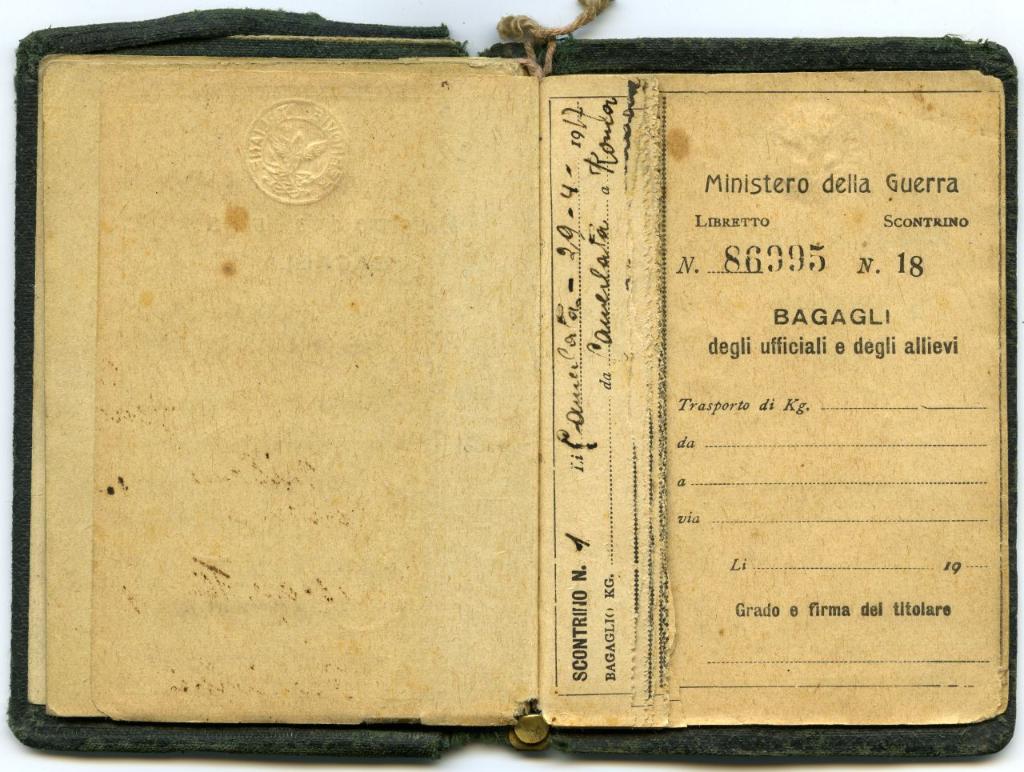 SCONTRINO N. 1 Li Camerlata - 29 - 4 - 1917
BAGAGLIO KG. da Camerlata a Roma
Ministero della Guerra
LIBRETTO SCONTRINO
N. 86995 N. 18
BAGAGLI
degli ufficiali e degli allievi
Trasporto di Kg.
da
a
via
Li 19
Grado e firma del titolare